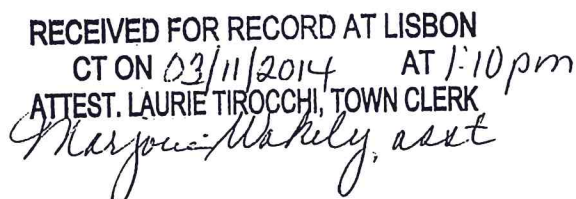 RECEIVED FOR RECORD AT LISBON
CT ON 03/11/2014 AT 1:10 pm
ATTEST. LAURIE TIROCCHI, TOWN CLERK
Marjorie Wakely, asst